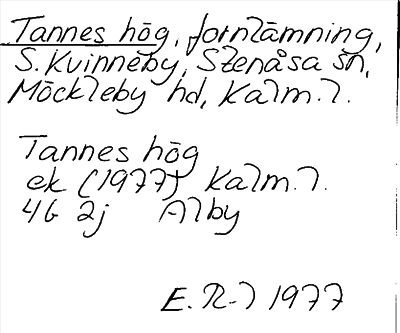 Tannes hög, fornlämning,
S. Kvinneby, Stenåsa sn,
Möckleby hd, Kalm. l.
Tannes hög
ek (1977) Kalm. l.
4G 2j Alby
E. R-l 1977